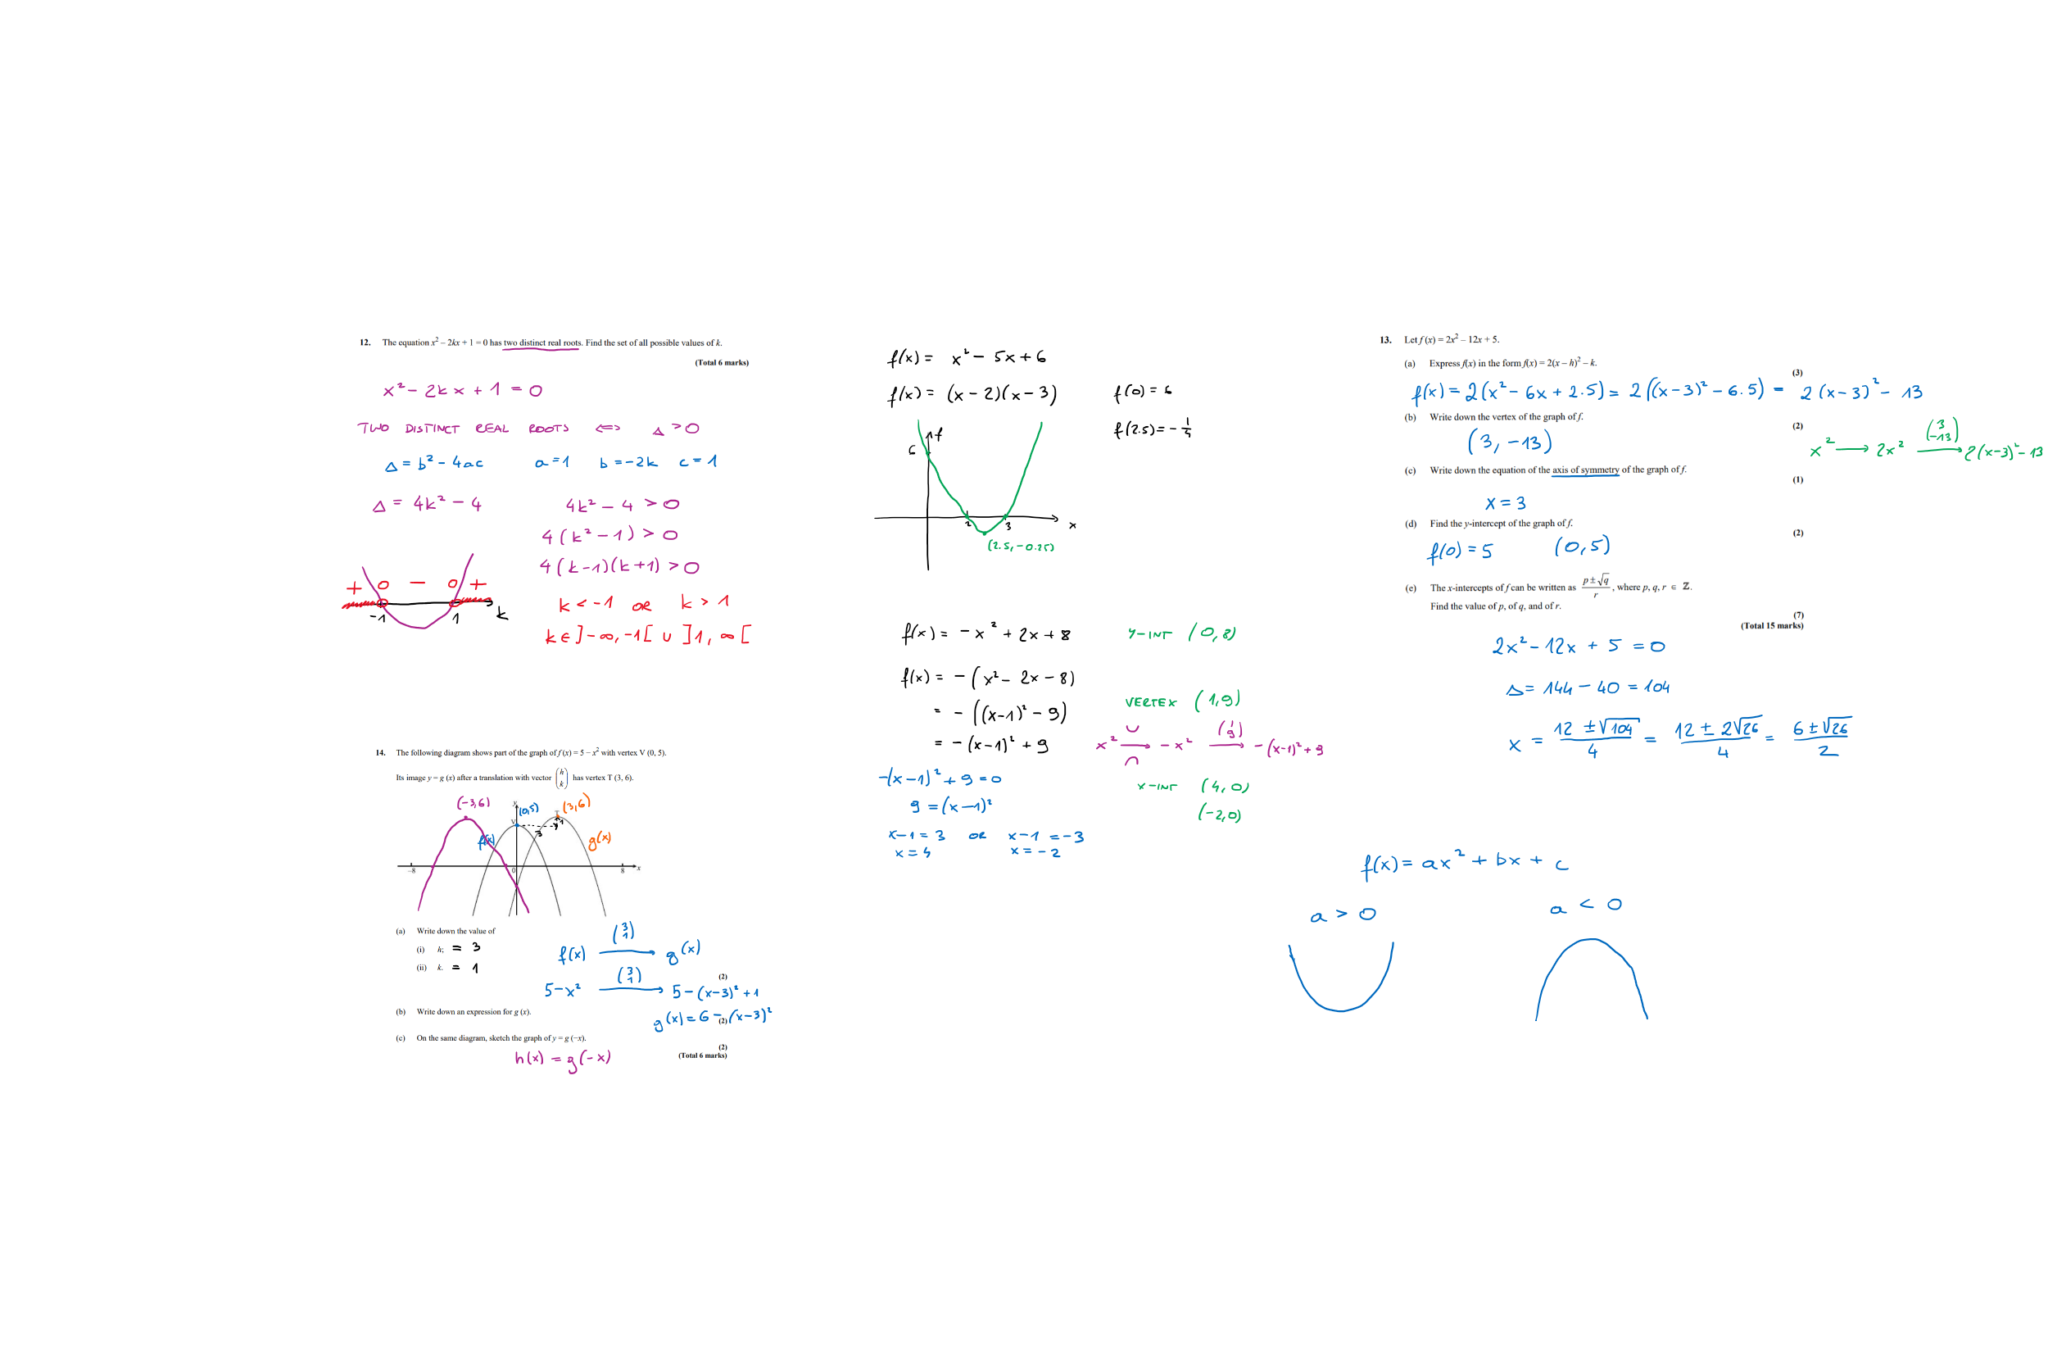 12. The equation x² – 2kx + 1 = 0 has two distinct real roots. Find the set of all possible values of k.
(Total 6 marks)
x² – 2kx + 1 = 0
TWO DISTINCT REAL ROOTS ⇔ Δ > 0
Δ = b² – 4ac a = 1 b = –2k c = 1
Δ = 4k² – 4 4k² – 4 > 0
4(k² – 1) > 0
4(k–1)(k+1) > 0
+ 0 – 0 +
-1 1 k
k < -1 OR k > 1
k ∈ ]-∞, -1[ ∪ ]1, ∞[
14. The following diagram shows part of the graph of f (x) = 5 – x² with vertex V (0, 5).
Its image y = g (x) after a translation with vector (h k) has vertex T (3, 6).
(-3,6) (0,5) (3,6)
f(x) 3 1 g(x)
–8 0 8 x
(a) Write down the value of
(i) h; = 3
(ii) k. = 1
f(x) (3 1) → g(x)
(2)
5–x² (3 1) → 5 – (x–3)² + 1
(b) Write down an expression for g (x).
(2)
g(x) = 6 – (x–3)²
(c) On the same diagram, sketch the graph of y = g (–x).
(2)
(Total 6 marks)
h(x) = g(-x)
f(x) = x² – 5x + 6
f(x) = (x – 2)(x – 3) f(0) = 6
f(2.5) = – 1/4
6 f
2 3 x
(2.5, -0.25)
f(x) = – x² + 2x + 8 Y-INT (0, 8)
f(x) = – (x² – 2x – 8)
= – ((x–1)² – 9) VERTEX (1,9)
= – (x–1)² + 9 x² ∪ → ∩ – x² (1 9) → – (x–1)² + 9
-(x–1)² + 9 = 0 X-INT (4, 0)
9 = (x–1)² (-2,0)
x–1 = 3 OR x–1 = –3
x = 4 x = – 2
13. Let f (x) = 2x² – 12x + 5.
(a) Express f(x) in the form f(x) = 2(x – h)² – k.
(3)
f(x) = 2(x² – 6x + 2.5) = 2((x–3)² – 6.5) = 2(x–3)² – 13
(b) Write down the vertex of the graph of f.
(2)
(3, –13)
x² → 2x² (3 -13) → 2(x–3)² – 13
(c) Write down the equation of the axis of symmetry of the graph of f.
(1)
x = 3
(d) Find the y-intercept of the graph of f.
(2)
f(0) = 5 (0,5)
(e) The x-intercepts of f can be written as (p ± √q)/r, where p, q, r ∈ ℤ.
Find the value of p, of q, and of r.
(7)
(Total 15 marks)
2x² – 12x + 5 = 0
Δ = 144 – 40 = 104
x = (12 ± √104)/4 = (12 ± 2√26)/4 = (6 ± √26)/2
f(x) = ax² + bx + c
a > 0 a < 0